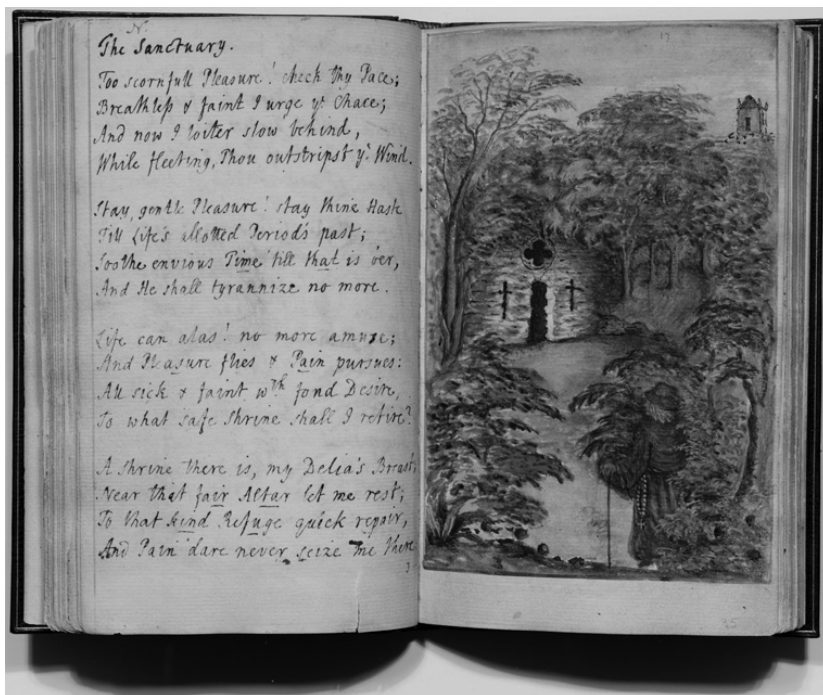 N.
The Sanctuary.
Too scornfull Pleasure! check thy Pace;
Breathless & faint I urge yt Chace;
And now I loiter slow behind,
While fleeting, Thou outstripst ye Wind.
Stay, gentle Pleasure! stay thine Haste
Till Life's allotted Period's past;
Soothe envious Time till that is o'er,
And He shall tyrannize no more.
Life can alas! no more amuse;
And Pleasure flies & Pain pursues:
All sick & faint wth fond Desire,
To what safe Shrine shall I retire?
A Shrine there is, my Delia's Breast;
Near that fair Altar let me rest;
To that kind Refuge quick repair,
And Pain dare never seize me there
3
35